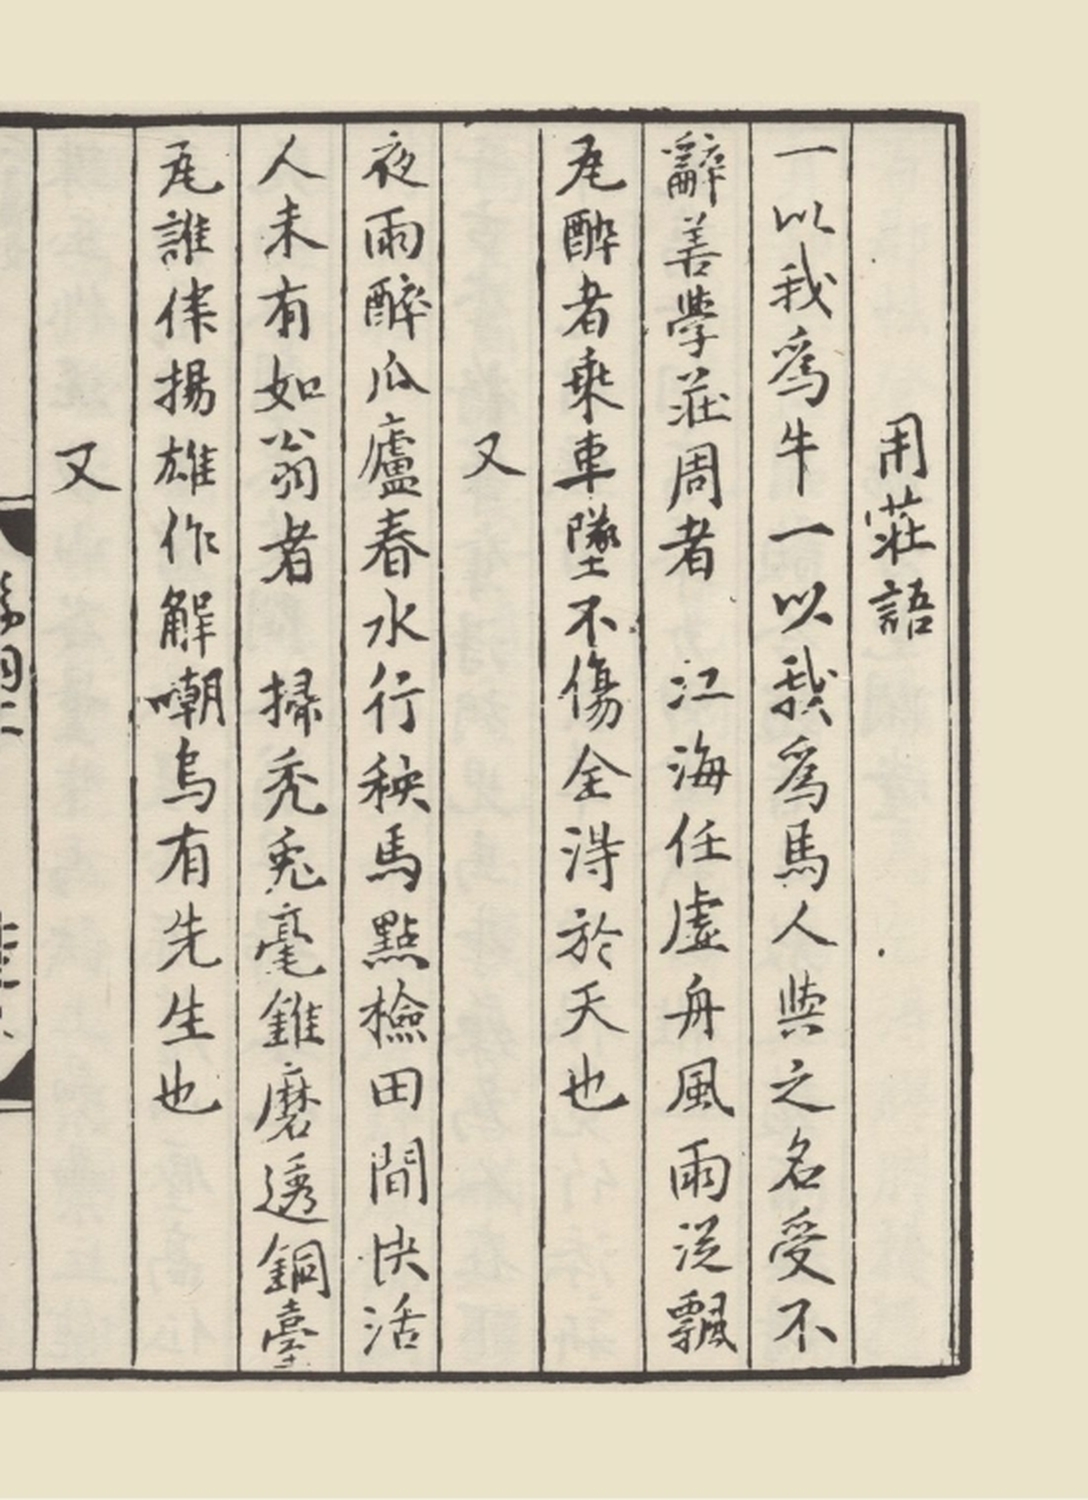 用莊語
一以我爲牛一以我爲馬人與之名受不
辭善學莊周者　江海任虛舟風雨從飄
瓦醉者乘車墜不傷全得於天也
又
夜雨醉瓜廬春水行秧馬點檢田間快活
人未有如翁者　掃禿兎毫錐磨透銅臺
瓦誰伴揚雄作解嘲烏有先生也
又